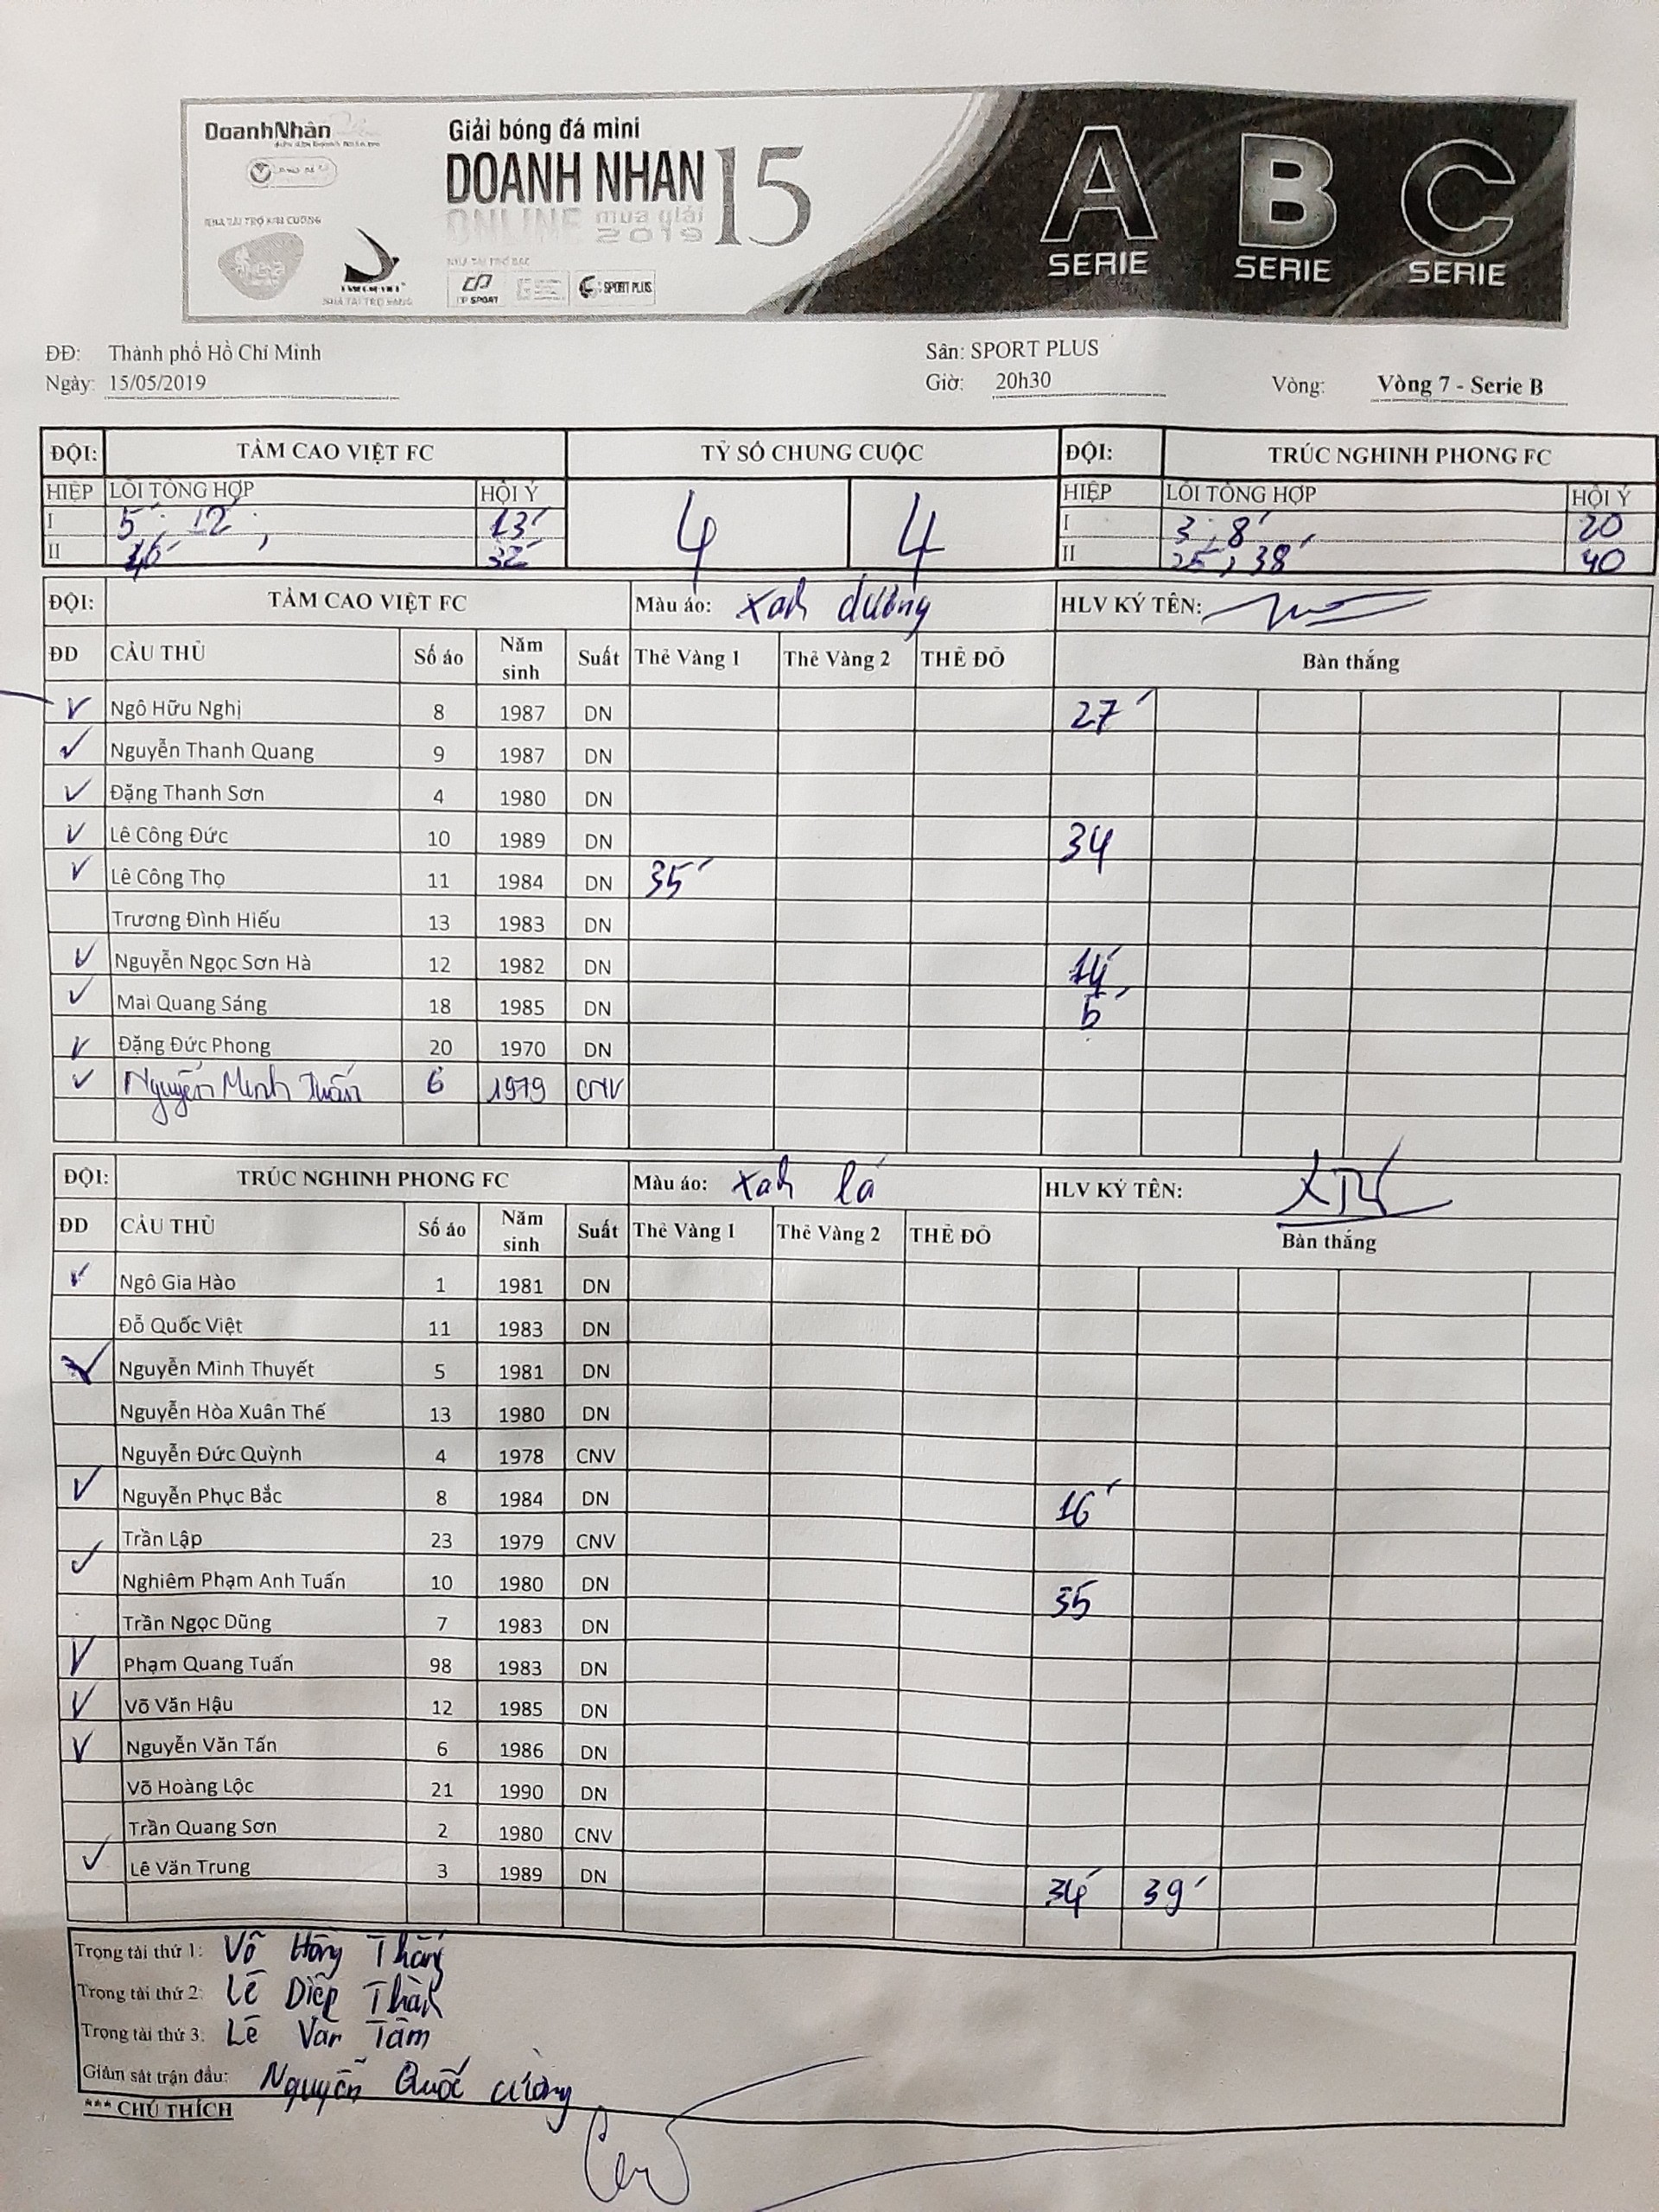 DoanhNhân
Giải bóng đá mini
DOANH NHAN 15
ONLINE mua giải
2019
NHÀ TÀI TRỢ KIM CƯƠNG
NHÀ TÀI TRỢ BẠC
SPORT
SPORT PLUS
A B C
SERIE SERIE SERIE
ĐĐ: Thành phố Hồ Chí Minh Sân: SPORT PLUS
Ngày: 15/05/2019 Giờ: 20h30 Vòng: Vòng 7 - Serie B
ĐỘI: TẦM CAO VIỆT FC TỶ SỐ CHUNG CUỘC ĐỘI: TRÚC NGHINH PHONG FC
HIỆP LỖI TỔNG HỢP HỘI Ý 4 4 HIỆP LỖI TỔNG HỢP HỘI Ý
I 5' 12' 13' I 3; 8' 20
II 32' II 25', 38' 40
ĐỘI: TẦM CAO VIỆT FC Màu áo: xah dương HLV KÝ TÊN:
ĐD CẦU THỦ Số áo Năm sinh Suất Thẻ Vàng 1 Thẻ Vàng 2 THẺ ĐỎ Bàn thắng
Ngô Hữu Nghị 8 1987 DN 27'
Nguyễn Thanh Quang 9 1987 DN
Đặng Thanh Sơn 4 1980 DN
Lê Công Đức 10 1989 DN 34
Lê Công Thọ 11 1984 DN 35'
Trương Đình Hiếu 13 1983 DN
Nguyễn Ngọc Sơn Hà 12 1982 DN 14'
Mai Quang Sáng 18 1985 DN 5'
Đặng Đức Phong 20 1970 DN
Nguyễn Minh Tuấn 6 1979 CNV
ĐỘI: TRÚC NGHINH PHONG FC Màu áo: xah lá HLV KÝ TÊN:
ĐD CẦU THỦ Số áo Năm sinh Suất Thẻ Vàng 1 Thẻ Vàng 2 THẺ ĐỎ Bàn thắng
Ngô Gia Hào 1 1981 DN
Đỗ Quốc Việt 11 1983 DN
Nguyễn Minh Thuyết 5 1981 DN
Nguyễn Hòa Xuân Thế 13 1980 DN
Nguyễn Đức Quỳnh 4 1978 CNV
Nguyễn Phục Bắc 8 1984 DN 16'
Trần Lập 23 1979 CNV
Nghiêm Phạm Anh Tuấn 10 1980 DN 35
Trần Ngọc Dũng 7 1983 DN
Phạm Quang Tuấn 98 1983 DN
Võ Văn Hậu 12 1985 DN
Nguyễn Văn Tấn 6 1986 DN
Võ Hoàng Lộc 21 1990 DN
Trần Quang Sơn 2 1980 CNV
Lê Văn Trung 3 1989 DN 34' 39'
Trọng tài thứ 1: Võ Hồng Thắng
Trọng tài thứ 2: Lê Diệp Thành
Trọng tài thứ 3: Lê Văn Tâm
Giám sát trận đấu: Nguyễn Quốc Cường
*** CHÚ THÍCH